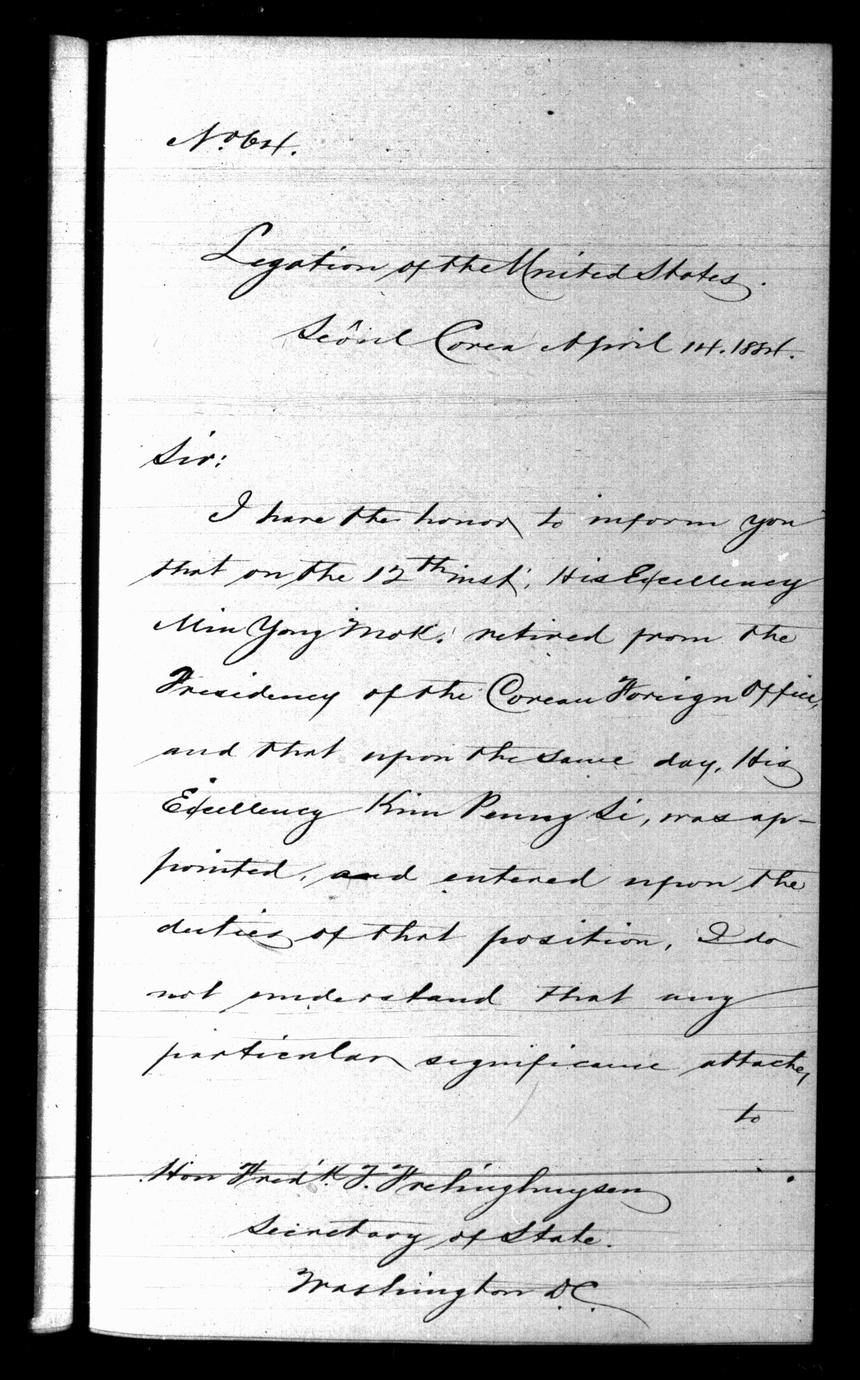 No. 64.
Legation of the United States.
Seöul Corea April 14. 1884.
Sir:
I have the honor to inform you
that on the 12th inst; His Excellency
Min Yong Mok: retired from the
Presidency of the Corean Foreign Office,
and that upon the same day, His
Excellency Kim Penng Si, was ap-
pointed, and entered upon the
duties of that position, I do
not understand that any
particular significance attaches
to
Hon Fred'k. T. Frelinghuysen
Secretary of State.
Washington D.C.